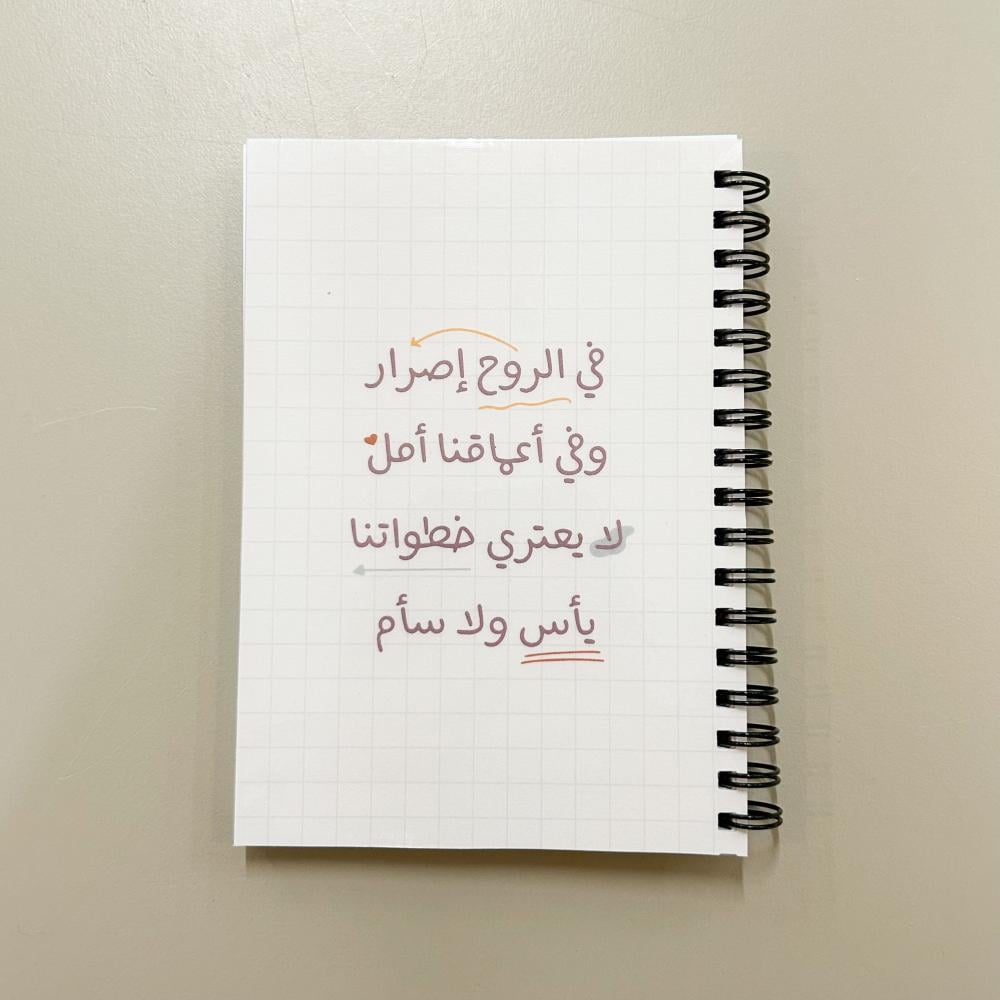 في الروح إصرار
وفي أعماقنا أمل
لا يعتري خطواتنا
يأس ولا سأم